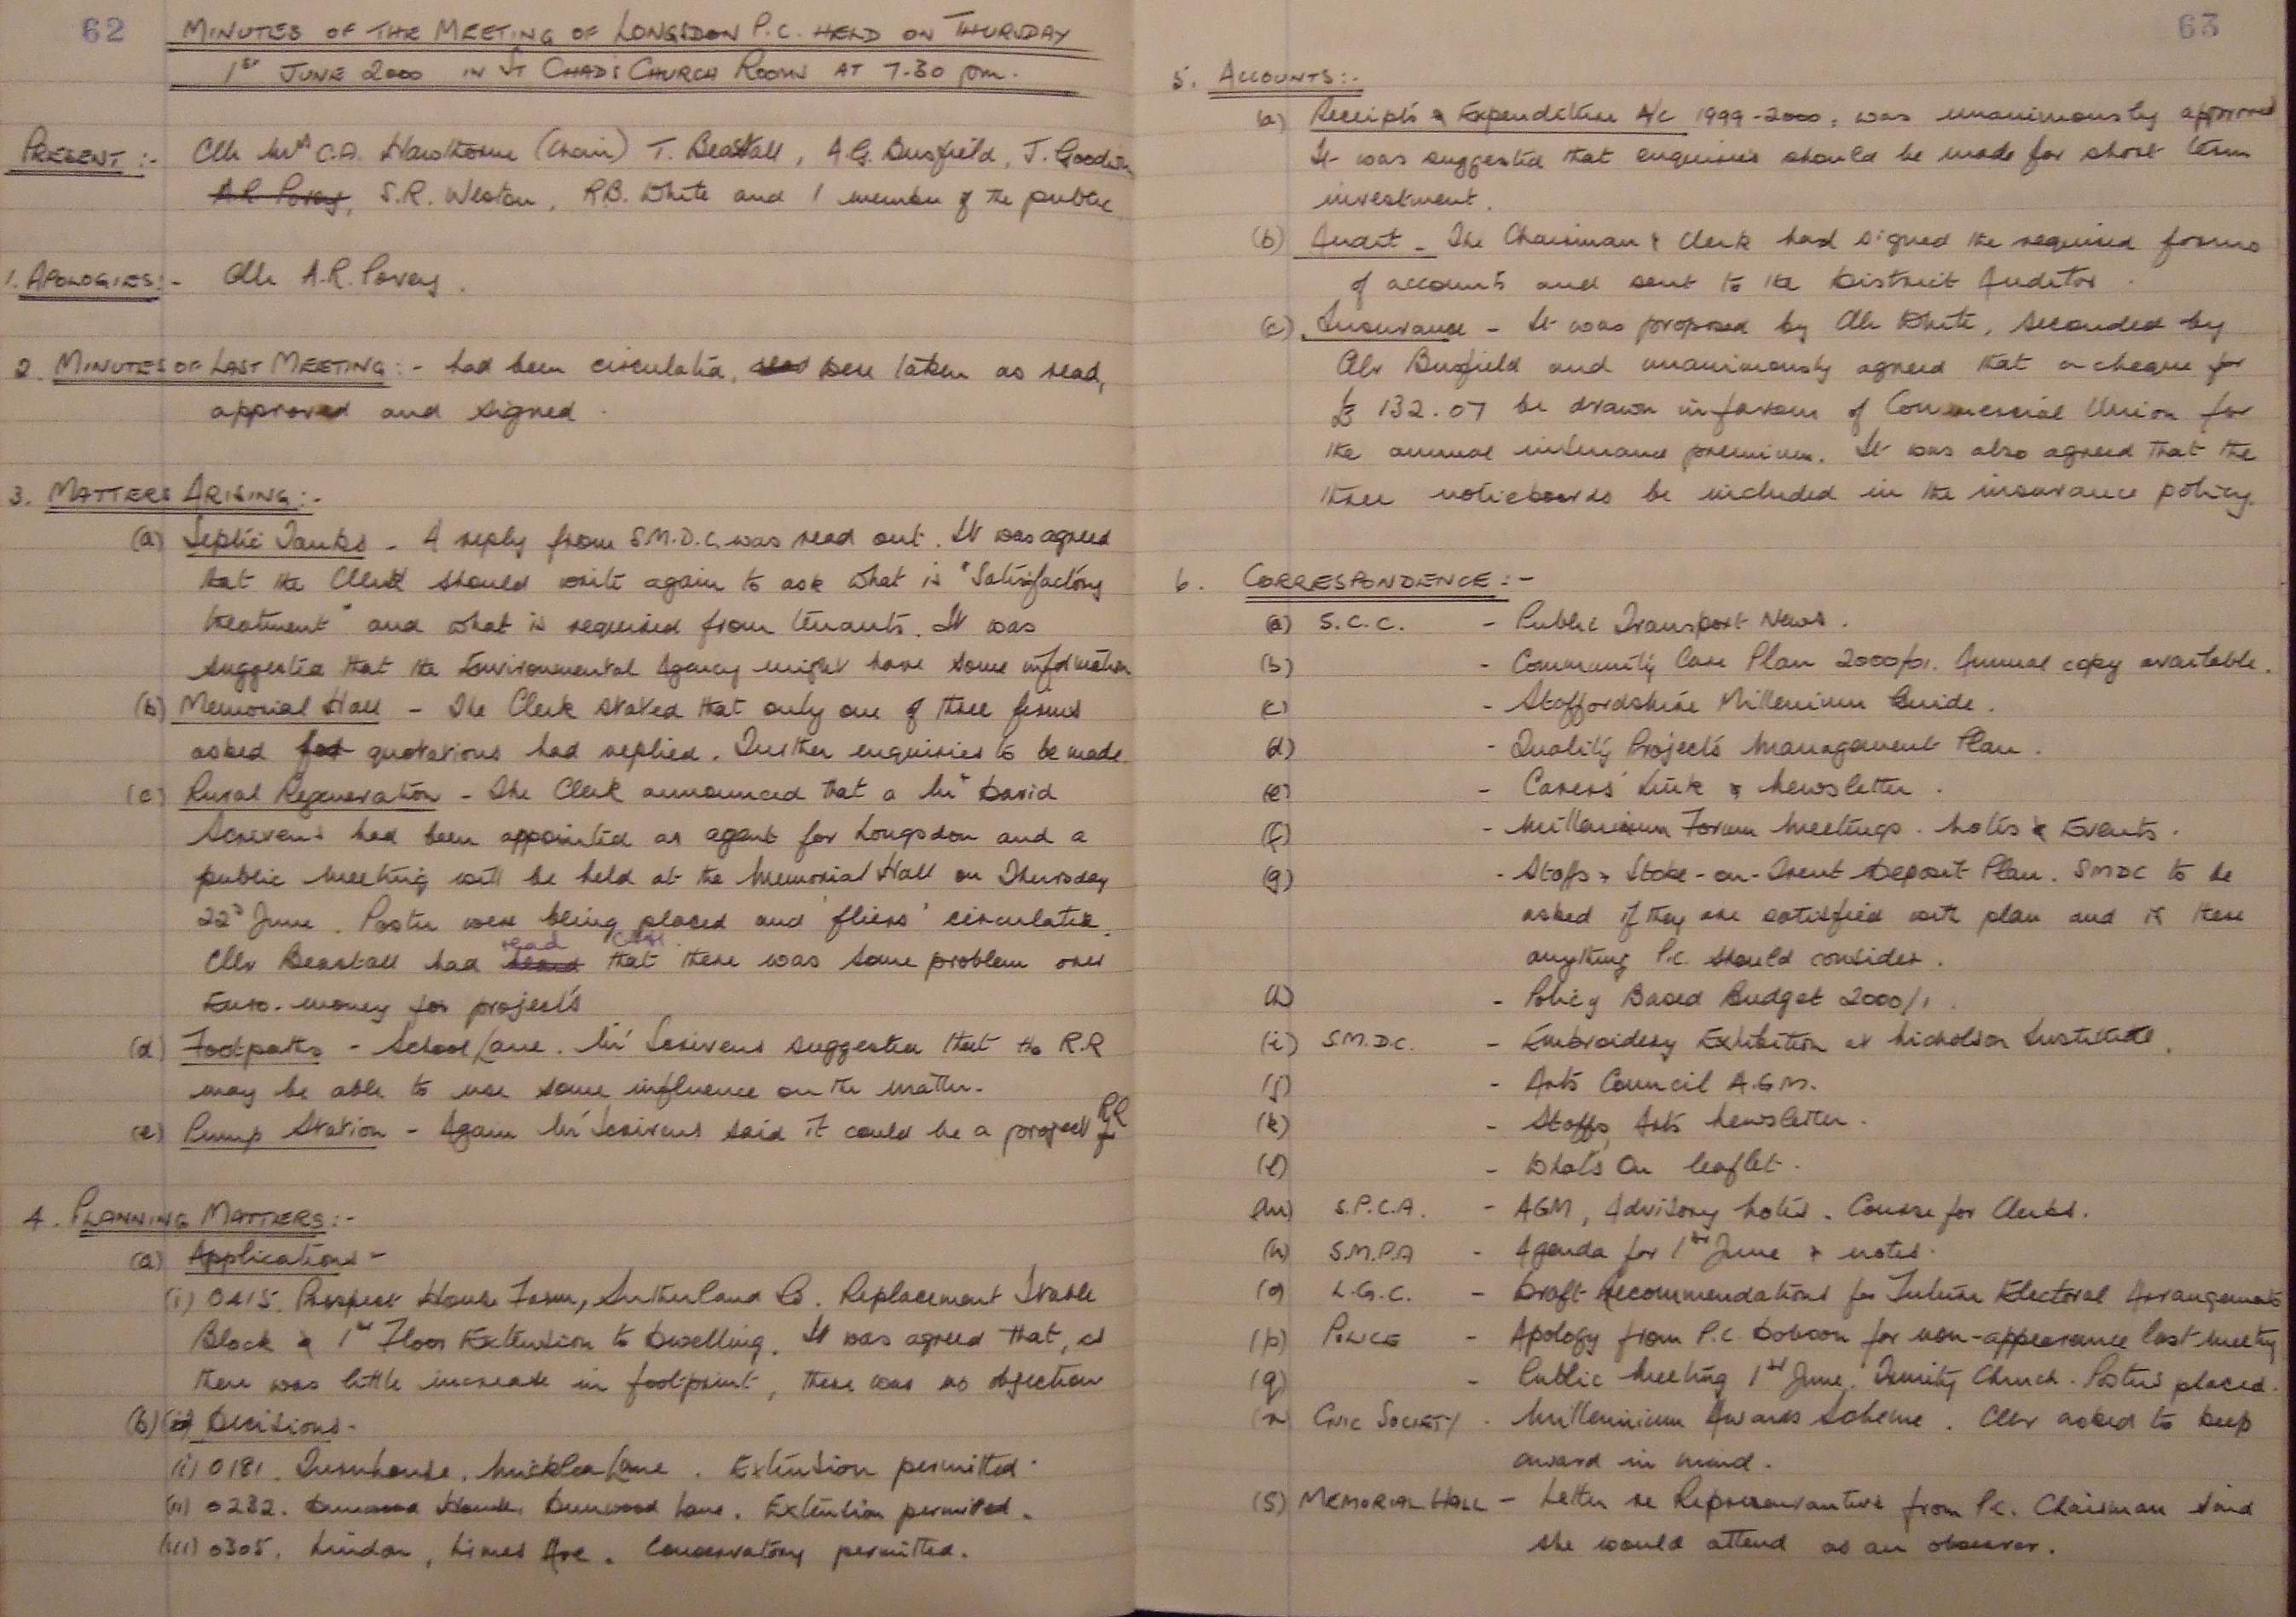 62
MINUTES OF THE MEETING OF LONGSDON P.C. HELD ON THURSDAY
1ST JUNE 2000 IN ST CHAD'S CHURCH ROOM AT 7.30 pm.
PRESENT :- Cllr Mrs C.A. Hawthorne (Chair) T. Beastall, A.G. Busfield, J. Goodwin
A.R. Povey, S.R. Weston, R.B. White and 1 member of the public
1. APOLOGIES :- Cllr A.R. Povey.
2. MINUTES OF LAST MEETING :- had been circulated, were taken as read,
approved and signed.
3. MATTERS ARISING :-
(a) Septic Tanks - A reply from S.M.D.C. was read out. It was agreed
that the Clerk should write again to ask what is "Satisfactory
treatment" and what is required from tenants. It was
suggested that the Environmental Agency might have some information
(b) Memorial Hall - The Clerk stated that only one of three firms
asked for quotations had replied. Further enquiries to be made.
(c) Rural Regeneration - The Clerk announced that a Mr David
Scrivens had been appointed as agent for Longsdon and a
public meeting will be held at the Memorial Hall on Thursday
22nd June. Poster were being placed and 'fliers' circulated.
read
Cllr Beastall had heard that there was some problem over
Euro-money for projects
(d) Footpaths - School Lane. Mr Scrivens suggested that the R.R
may be able to use some influence on the matter.
(e) Pump Station - Again Mr Scrivens said it could be a project for RR
4. PLANNING MATTERS :-
(a) Applications -
(i) 0415. Prospect House Farm, Sutherland Rd. Replacement Stable
Block & 1st Floor Extension to Dwelling. It was agreed that, as
there was little increase in footprint, there was no objection
(b) Decisions -
(i) 0181. Turnhouse, Micklea Lane. Extension permitted.
(ii) 0232. Dunwood House, Dunwood Lane. Extention permitted.
(iii) 0305. Lindon, Limes Ave. Conservatory permitted.
63
5. ACCOUNTS :-
(a) Receipts & Expenditure A/c 1999-2000. was unanimously approved
It was suggested that enquiries should be made for short term
investment.
(b) Audit - The Chairman & Clerk had signed the required forms
of accounts and sent to the District Auditor.
(c) Insurance - It was proposed by Cllr White, seconded by
Cllr Busfield and unanimously agreed that a cheque for
£132.07 be drawn in favour of Commercial Union for
the annual insurance premium. It was also agreed that the
three noticeboards be included in the insurance policy.
6. CORRESPONDENCE :-
(a) S.C.C. - Public Transport News.
(b) - Community Care Plan 2000/01. Annual copy available.
(c) - Staffordshire Millenium Guide.
(d) - Quality Projects Management Plan.
(e) - Carers' Link & Newsletter.
(f) - Millenium Forum Meetings. Notes & Events.
(g) - Staffs & Stoke-on-Trent Deposit Plan. SMDC to be
asked if they are satisfied with plan and is there
anything P.C. should consider.
(h) - Policy Based Budget 2000/1.
(i) S.M.D.C. - Embroidery Exhibition at Nicholson Institute.
(j) - Arts Council A.G.M.
(k) - Staffs Arts Newsletter.
(l) - What's On leaflet.
(m) S.P.C.A. - AGM, Advisory Notes. Course for Clerks.
(n) S.M.P.A - Agenda for 1st June & notes.
(o) L.G.C. - Draft Recommendations for Future Electoral Arrangements
(p) POLICE - Apology from P.C. Dobson for non-appearance last meeting
(q) - Public Meeting 1st June. Trinity Church. Posters placed.
(r) CIVIC SOCIETY - Millennium Awards Scheme. Cllr asked to keep
award in mind.
(s) MEMORIAL HALL - Letter re Representative from P.C. Chairman said
she would attend as an observer.